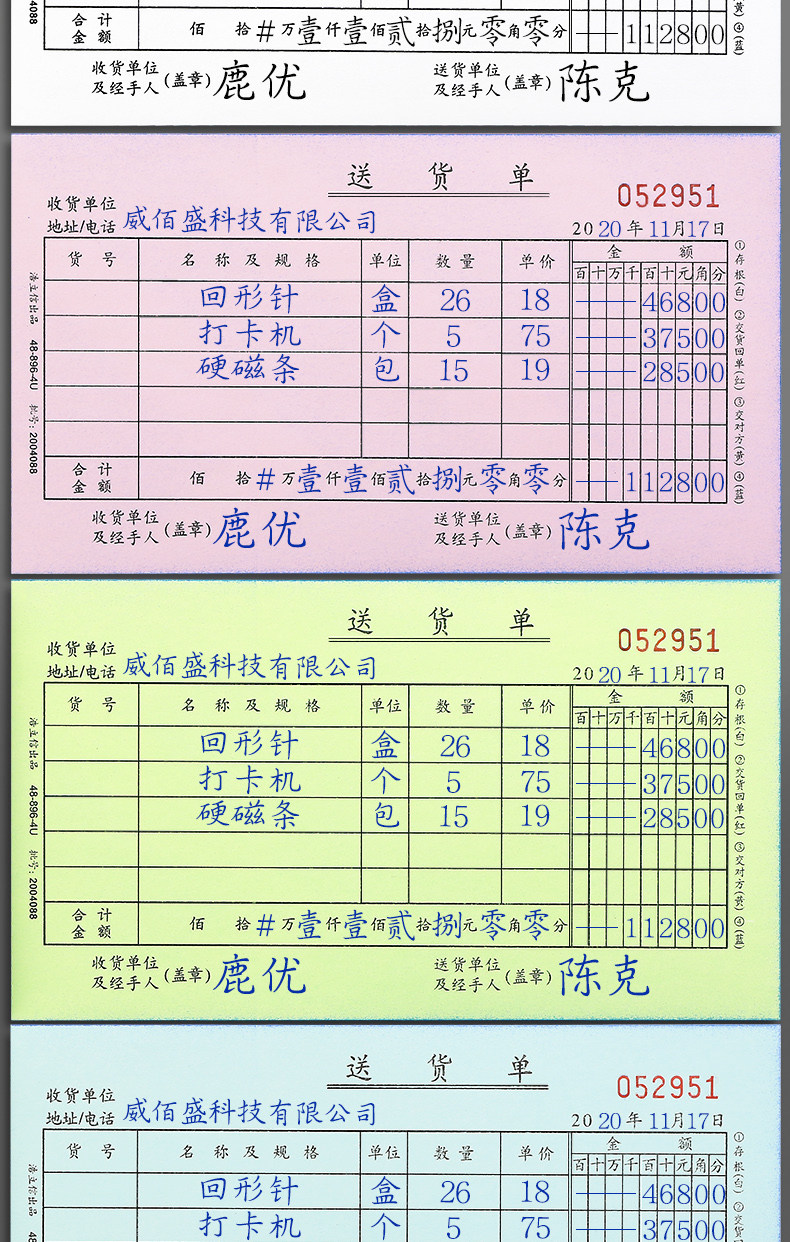 4088
合计
金额
佰 拾 # 万 壹 仟 壹 佰 贰 拾 捌 元 零 角 零 分 112800
黄) ④(蓝)
收货单位
及经手人 (盖章) 鹿优
送货单位
及经手人 (盖章) 陈克
送 货 单
052951
收货单位
地址/电话 威佰盛科技有限公司
2020年11月17日
货 号 名 称 及 规 格 单位 数量 单价 金 额
百 十 万 千 百 十 元 角 分
回形针 盒 26 18 46800
打卡机 个 5 75 37500
硬磁条 包 15 19 28500
合计
金额
佰 拾 # 万 壹 仟 壹 佰 贰 拾 捌 元 零 角 零 分 112800
浩立信出品 48-896-4U 批号:2004088
①存根(白) ②交货回单(红) ③交对方(黄) ④(蓝)
收货单位
及经手人 (盖章) 鹿优
送货单位
及经手人 (盖章) 陈克
送 货 单
052951
收货单位
地址/电话 威佰盛科技有限公司
2020年11月17日
货 号 名 称 及 规 格 单位 数量 单价 金 额
百 十 万 千 百 十 元 角 分
回形针 盒 26 18 46800
打卡机 个 5 75 37500
硬磁条 包 15 19 28500
合计
金额
佰 拾 # 万 壹 仟 壹 佰 贰 拾 捌 元 零 角 零 分 112800
浩立信出品 48-896-4U 批号:2004088
①存根(白) ②交货回单(红) ③交对方(黄) ④(蓝)
收货单位
及经手人 (盖章) 鹿优
送货单位
及经手人 (盖章) 陈克
送 货 单
052951
收货单位
地址/电话 威佰盛科技有限公司
2020年11月17日
货 号 名 称 及 规 格 单位 数量 单价 金 额
百 十 万 千 百 十 元 角 分
回形针 盒 26 18 46800
打卡机 个 5 75 37500
浩立信出品 48
①存根(白) ②交货